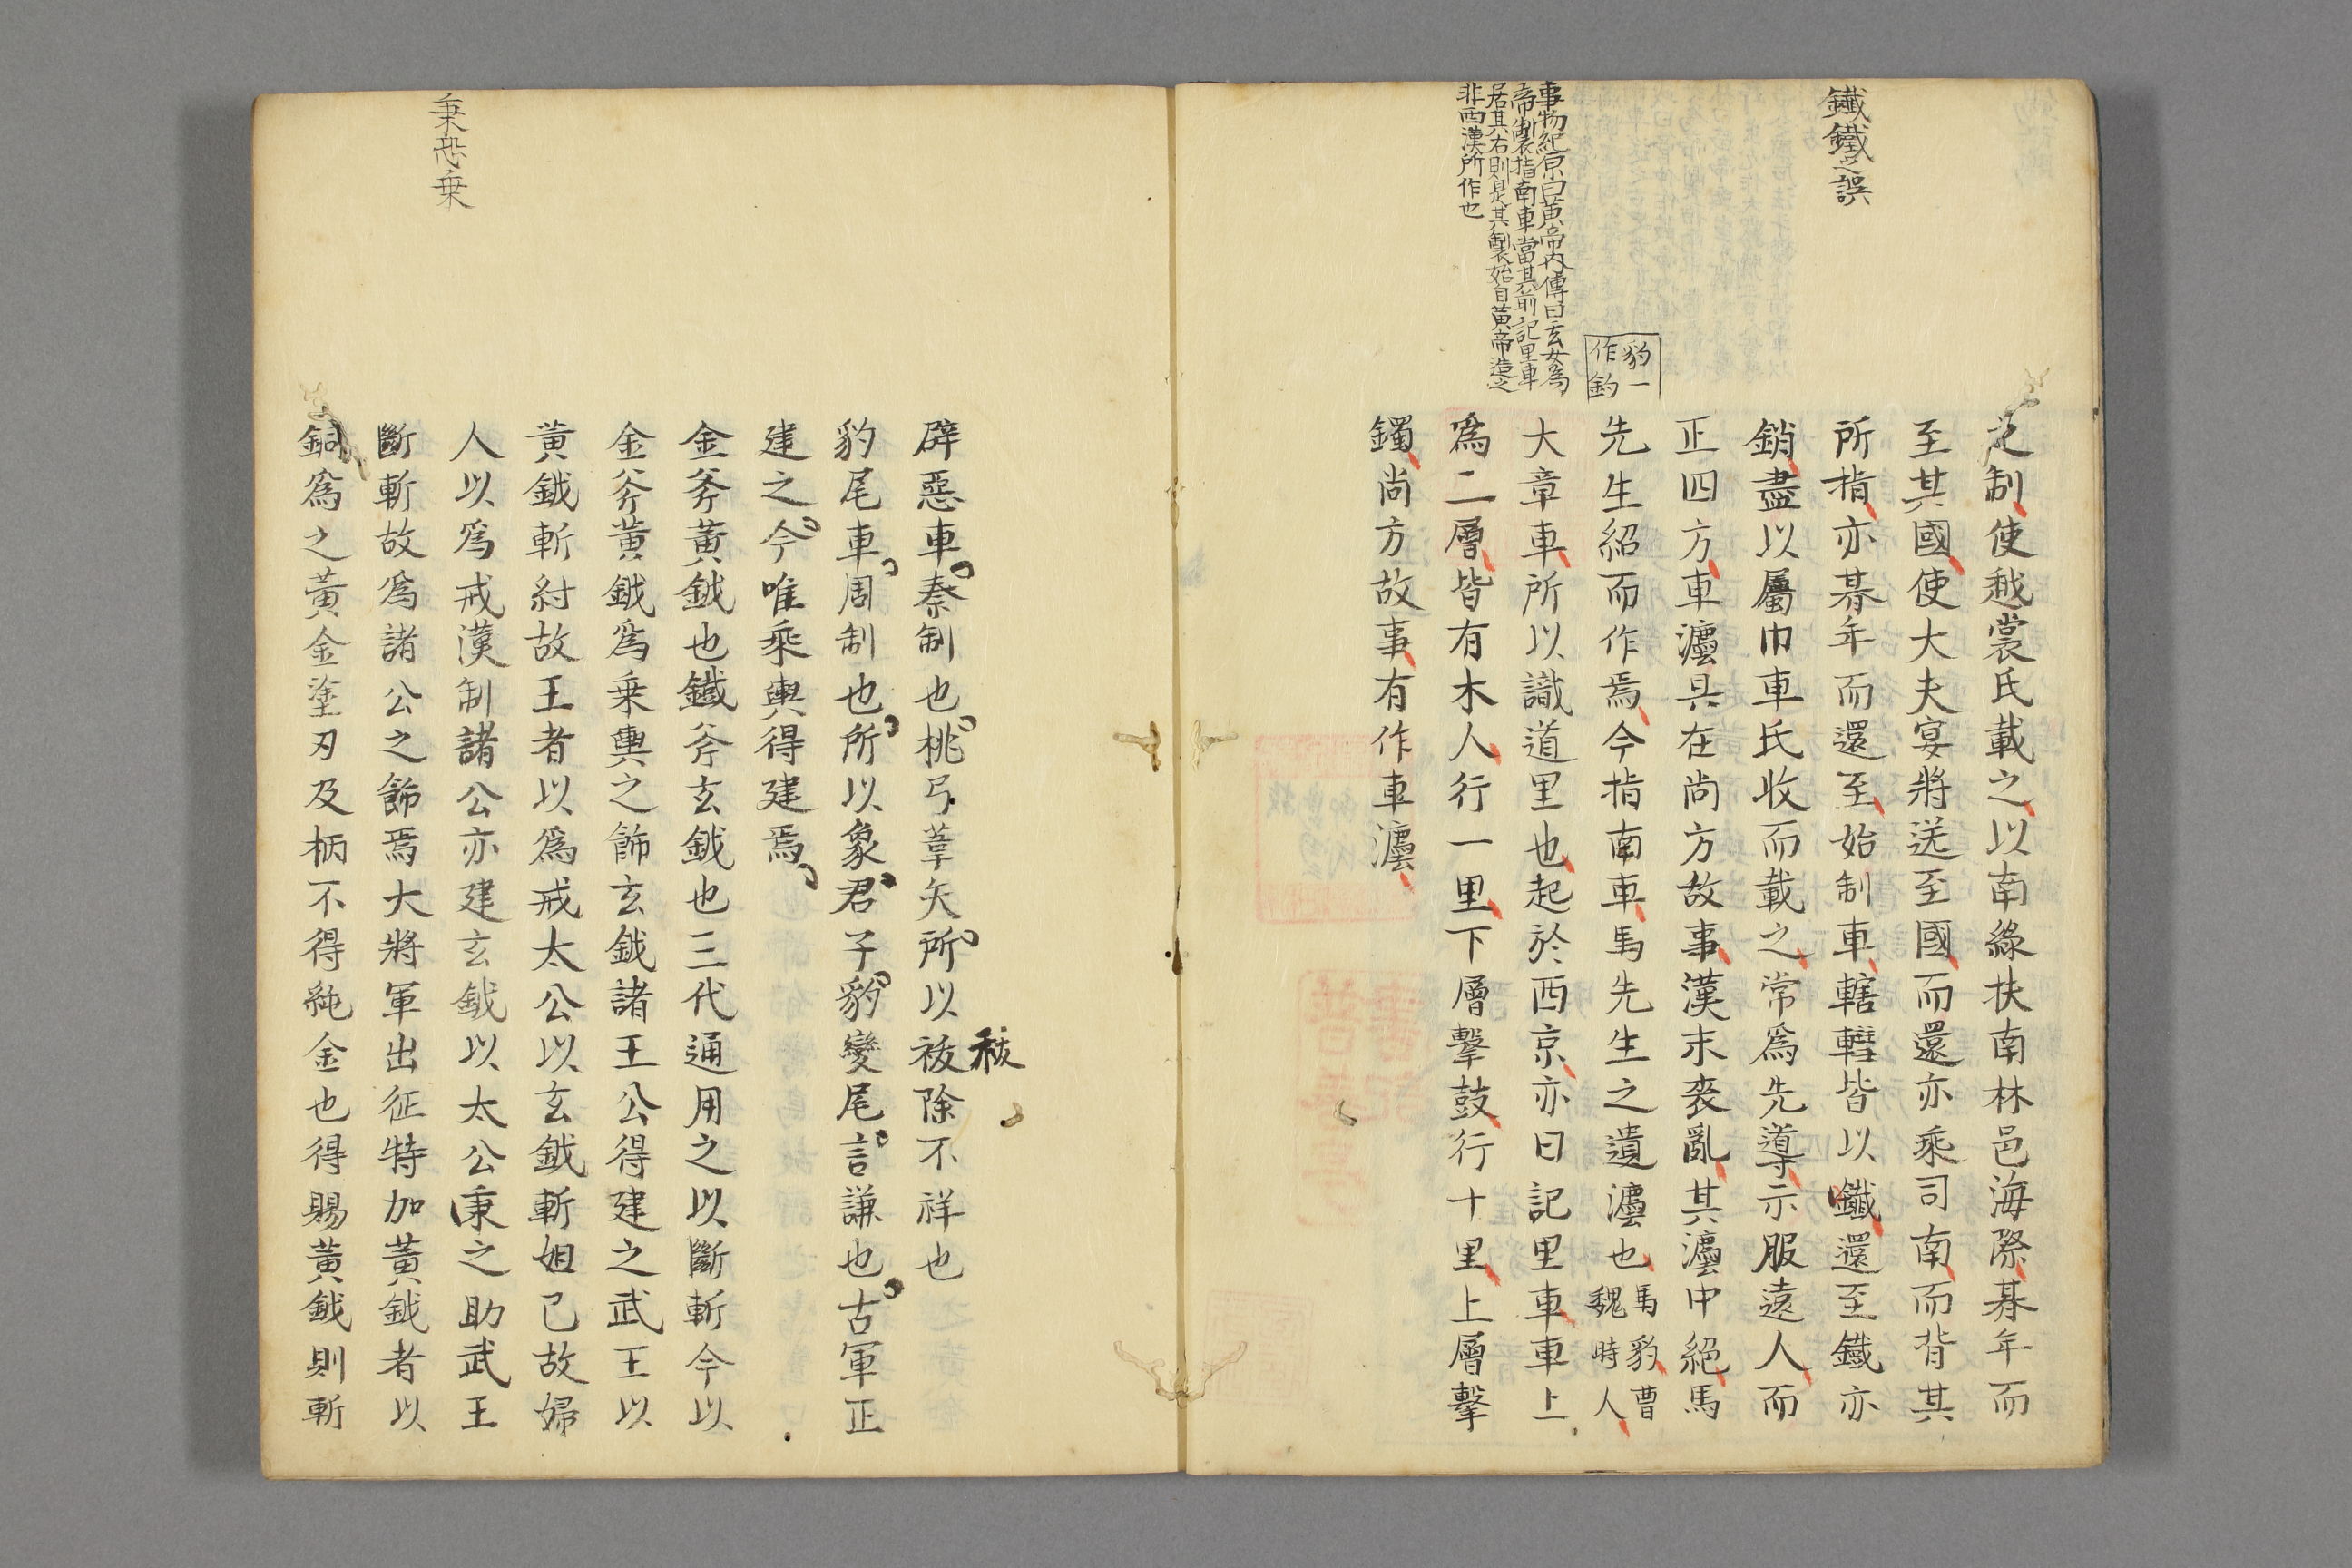 鐵鐵之誤
豹一
作鈞
事物紀原曰黄帝内傳曰玄女為
帝製指南車當其前記里車
居其右則是其製始自黄帝造之
非西漢所作也
之制使越裳氏載之以南緣扶南林邑海際朞年而
至其國使大夫宴將送至國而還亦乘司南而背其
所指亦朞年而還至始制車轄轊皆以鐵還至鐵亦
銷盡以屬巾車氏收而載之常爲先導示服遠人而
正四方車灋具在尚方故事漢末喪亂其灋中絕馬
先生紹而作焉今指南車馬先生之遺灋也
馬豹曹
魏時人
大章車所以識道里也起於西京亦曰記里車車上
爲二層皆有木人行一里下層擊鼓行十里上層擊
鐲尚方故事有作車灋
秉恐乗
辟惡車秦制也桃弓葦矢所以祓除不祥也
祓
豹尾車周制也所以象君子豹變尾言謙也古軍正
建之今唯乘輿得建焉
金斧黄鉞也鐵斧玄鉞也三代通用之以斷斬今以
金斧黄鉞爲乗輿之飾玄鉞諸王公得建之武王以
黄鉞斬紂故王者以爲戒太公以玄鉞斬妲己故婦
人以爲戒漢制諸公亦建玄鉞以太公秉之助武王
斷斬故爲諸公之飾焉大將軍出征特加黄鉞者以
銅爲之黄金塗刃及柄不得純金也得賜黄鉞則斬